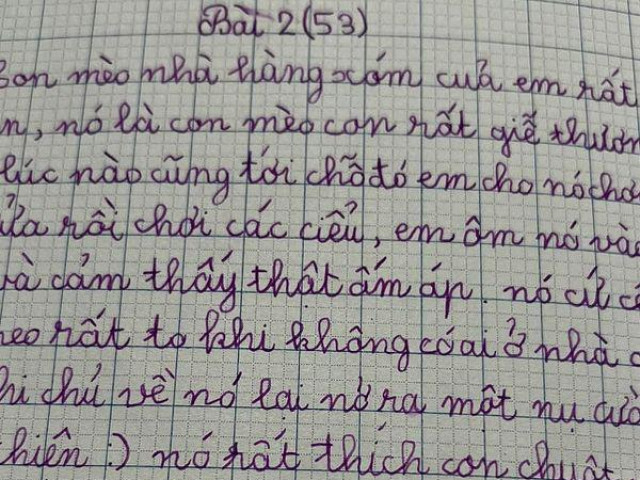 Bài 2 (53)
Con mèo nhà hàng xóm của em rất
nó là con mèo con rất giễ thươn
lúc nào cũng tới chỗ đó em cho nó chơi
rồi chơi các ciểu, em ôm nó vào
và cảm thấy thật ấm áp. nó cứ
rất to khi không có ai ở nhà
chú về nó lại nở ra một nụ cườ
nhiên :) nó rất thích con chuột